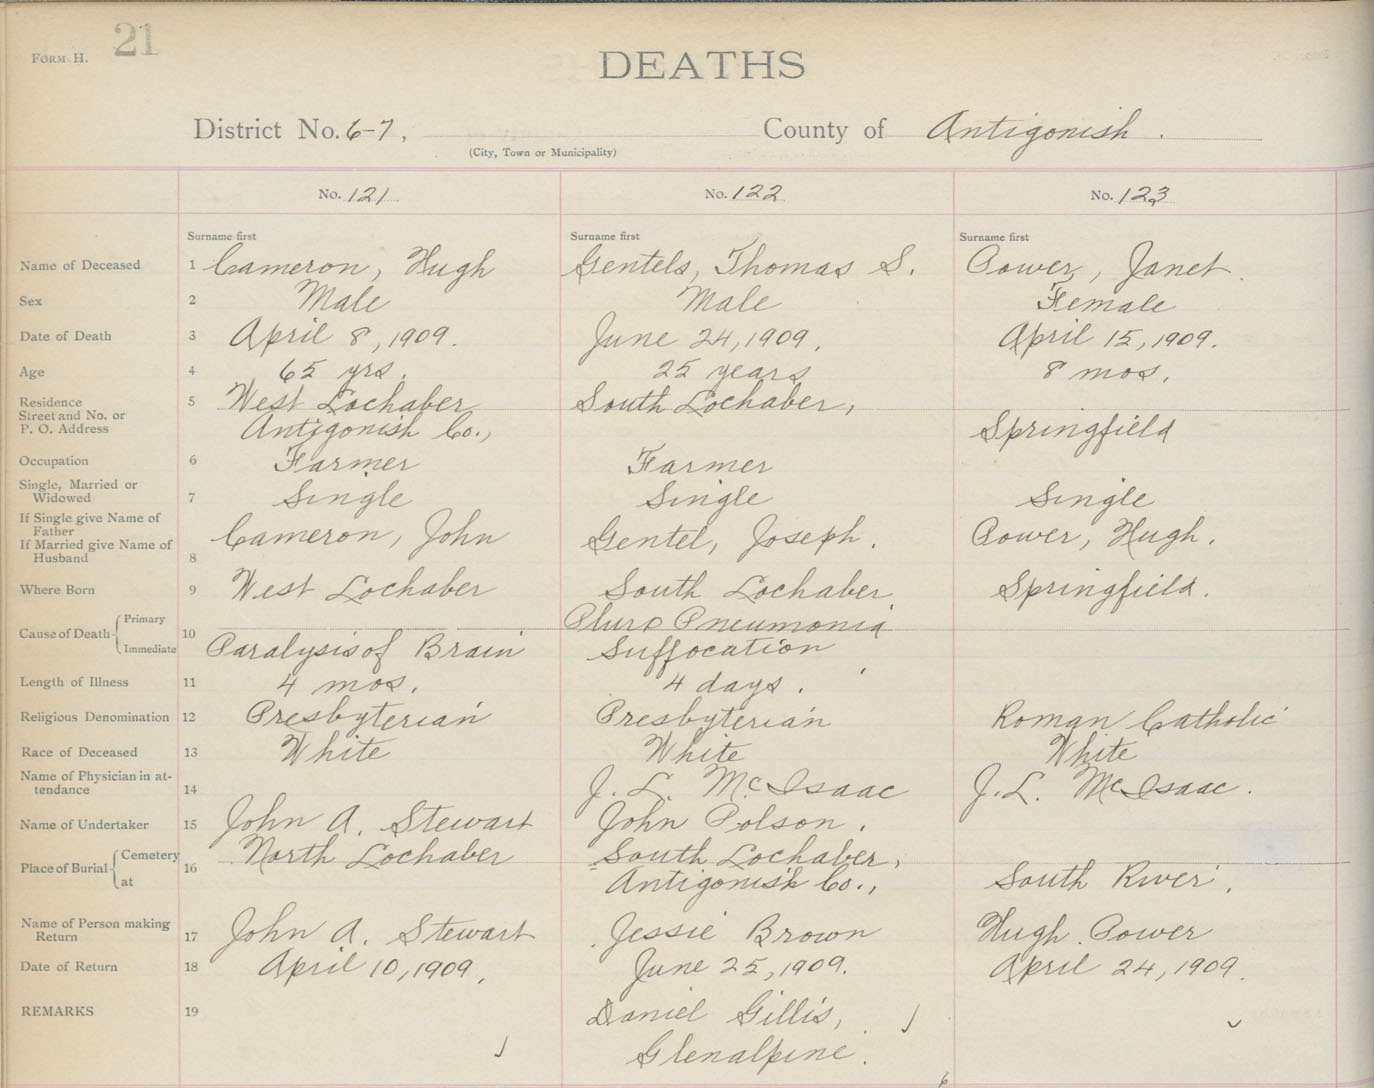 FORM H. 21
DEATHS
District No. 6-7, County of Antigonish.
(City, Town or Municipality)
No. 121 No. 122 No. 123
Surname first Surname first Surname first
Name of Deceased 1 Cameron, Hugh Gentels, Thomas S. Power, Janet.
Sex 2 Male Male Female
Date of Death 3 April 8, 1909. June 24, 1909. April 15, 1909.
Age 4 65 yrs. 25 years 8 mos.
Residence 5 West Lochaber South Lochaber,
Street and No. or
P. O. Address Antigonish Co., Springfield
Occupation 6 Farmer Farmer
Single, Married or
Widowed 7 Single Single Single
If Single give Name of
Father Cameron, John Gentel, Joseph. Power, Hugh.
If Married give Name of
Husband 8
Where Born 9 West Lochaber South Lochaber Springfield.
Cause of Death Primary 10 Pluro Pneumonia
Immediate Paralysis of Brain Suffocation
Length of Illness 11 4 mos. 4 days.
Religious Denomination 12 Presbyterian Presbyterian Roman Catholic
Race of Deceased 13 White White White
Name of Physician in at-
tendance 14 J. L. McIsaac J. L. McIsaac.
Name of Undertaker 15 John A. Stewart John Polson.
Place of Burial Cemetery 16 North Lochaber South Lochaber,
at Antigonish Co., South River.
Name of Person making
Return 17 John A. Stewart Jessie Brown Hugh Power
Date of Return 18 April 10, 1909. June 25, 1909. April 24, 1909.
REMARKS 19 Daniel Gillis,
Glenalpine.
6